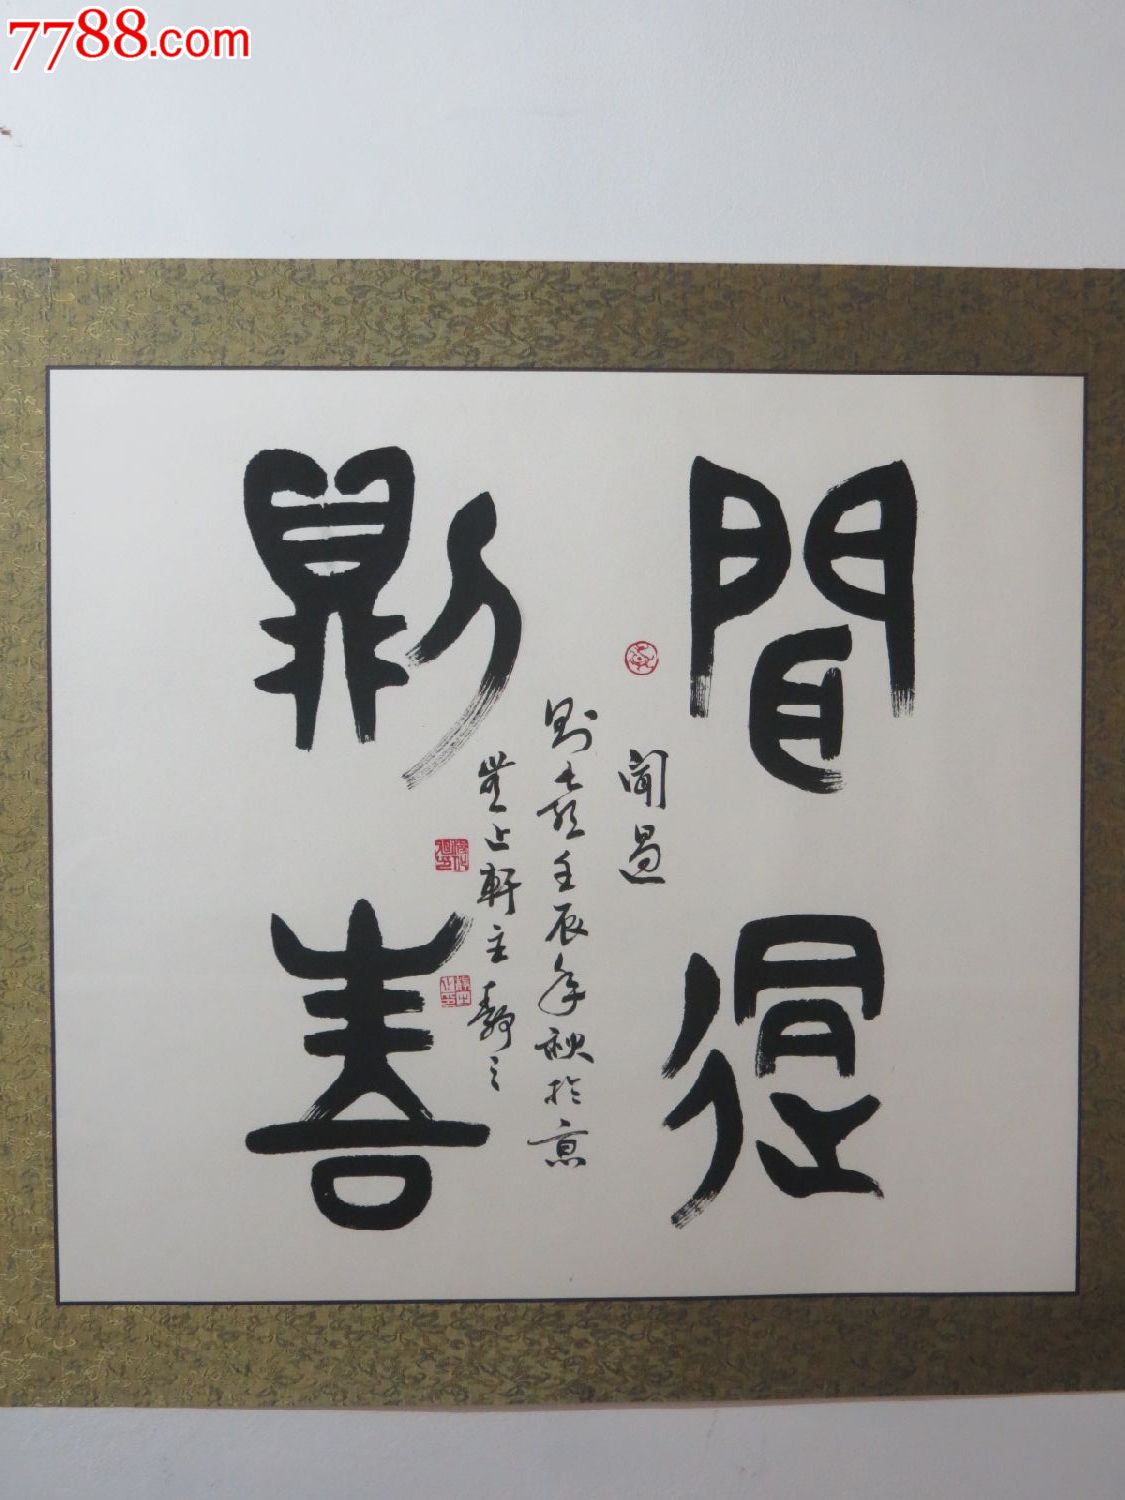 7788.com
聞過
則喜
聞過
則喜壬辰年秋於京
無止軒主靜之